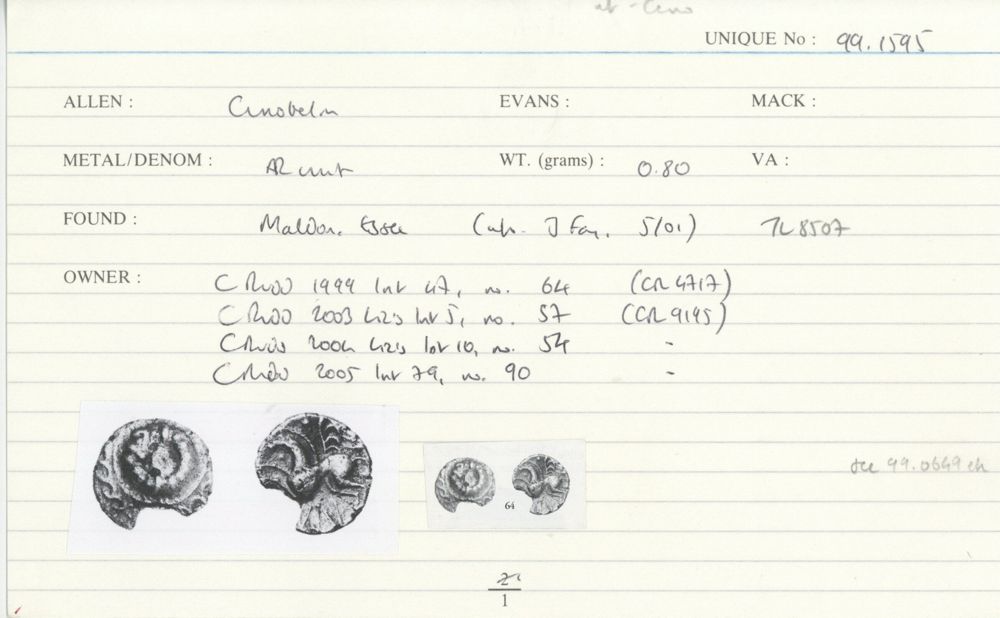 UNIQUE No : 99.1595
ALLEN : Cunobelin EVANS : MACK :
METAL/DENOM : AR unit WT. (grams) : 0.80 VA :
FOUND : Maldon, Essex (info. J Fay, 5/01) TL 8507
OWNER : CRudd 1999 list 47, no. 64 (CR 4717)
CRudd 2003 list 5, no. 57 (CR 9195)
CRudd 2004 list 10, no. 54 -
CRudd 2005 list 79, no. 90 -
64
see 99.0649
2
1